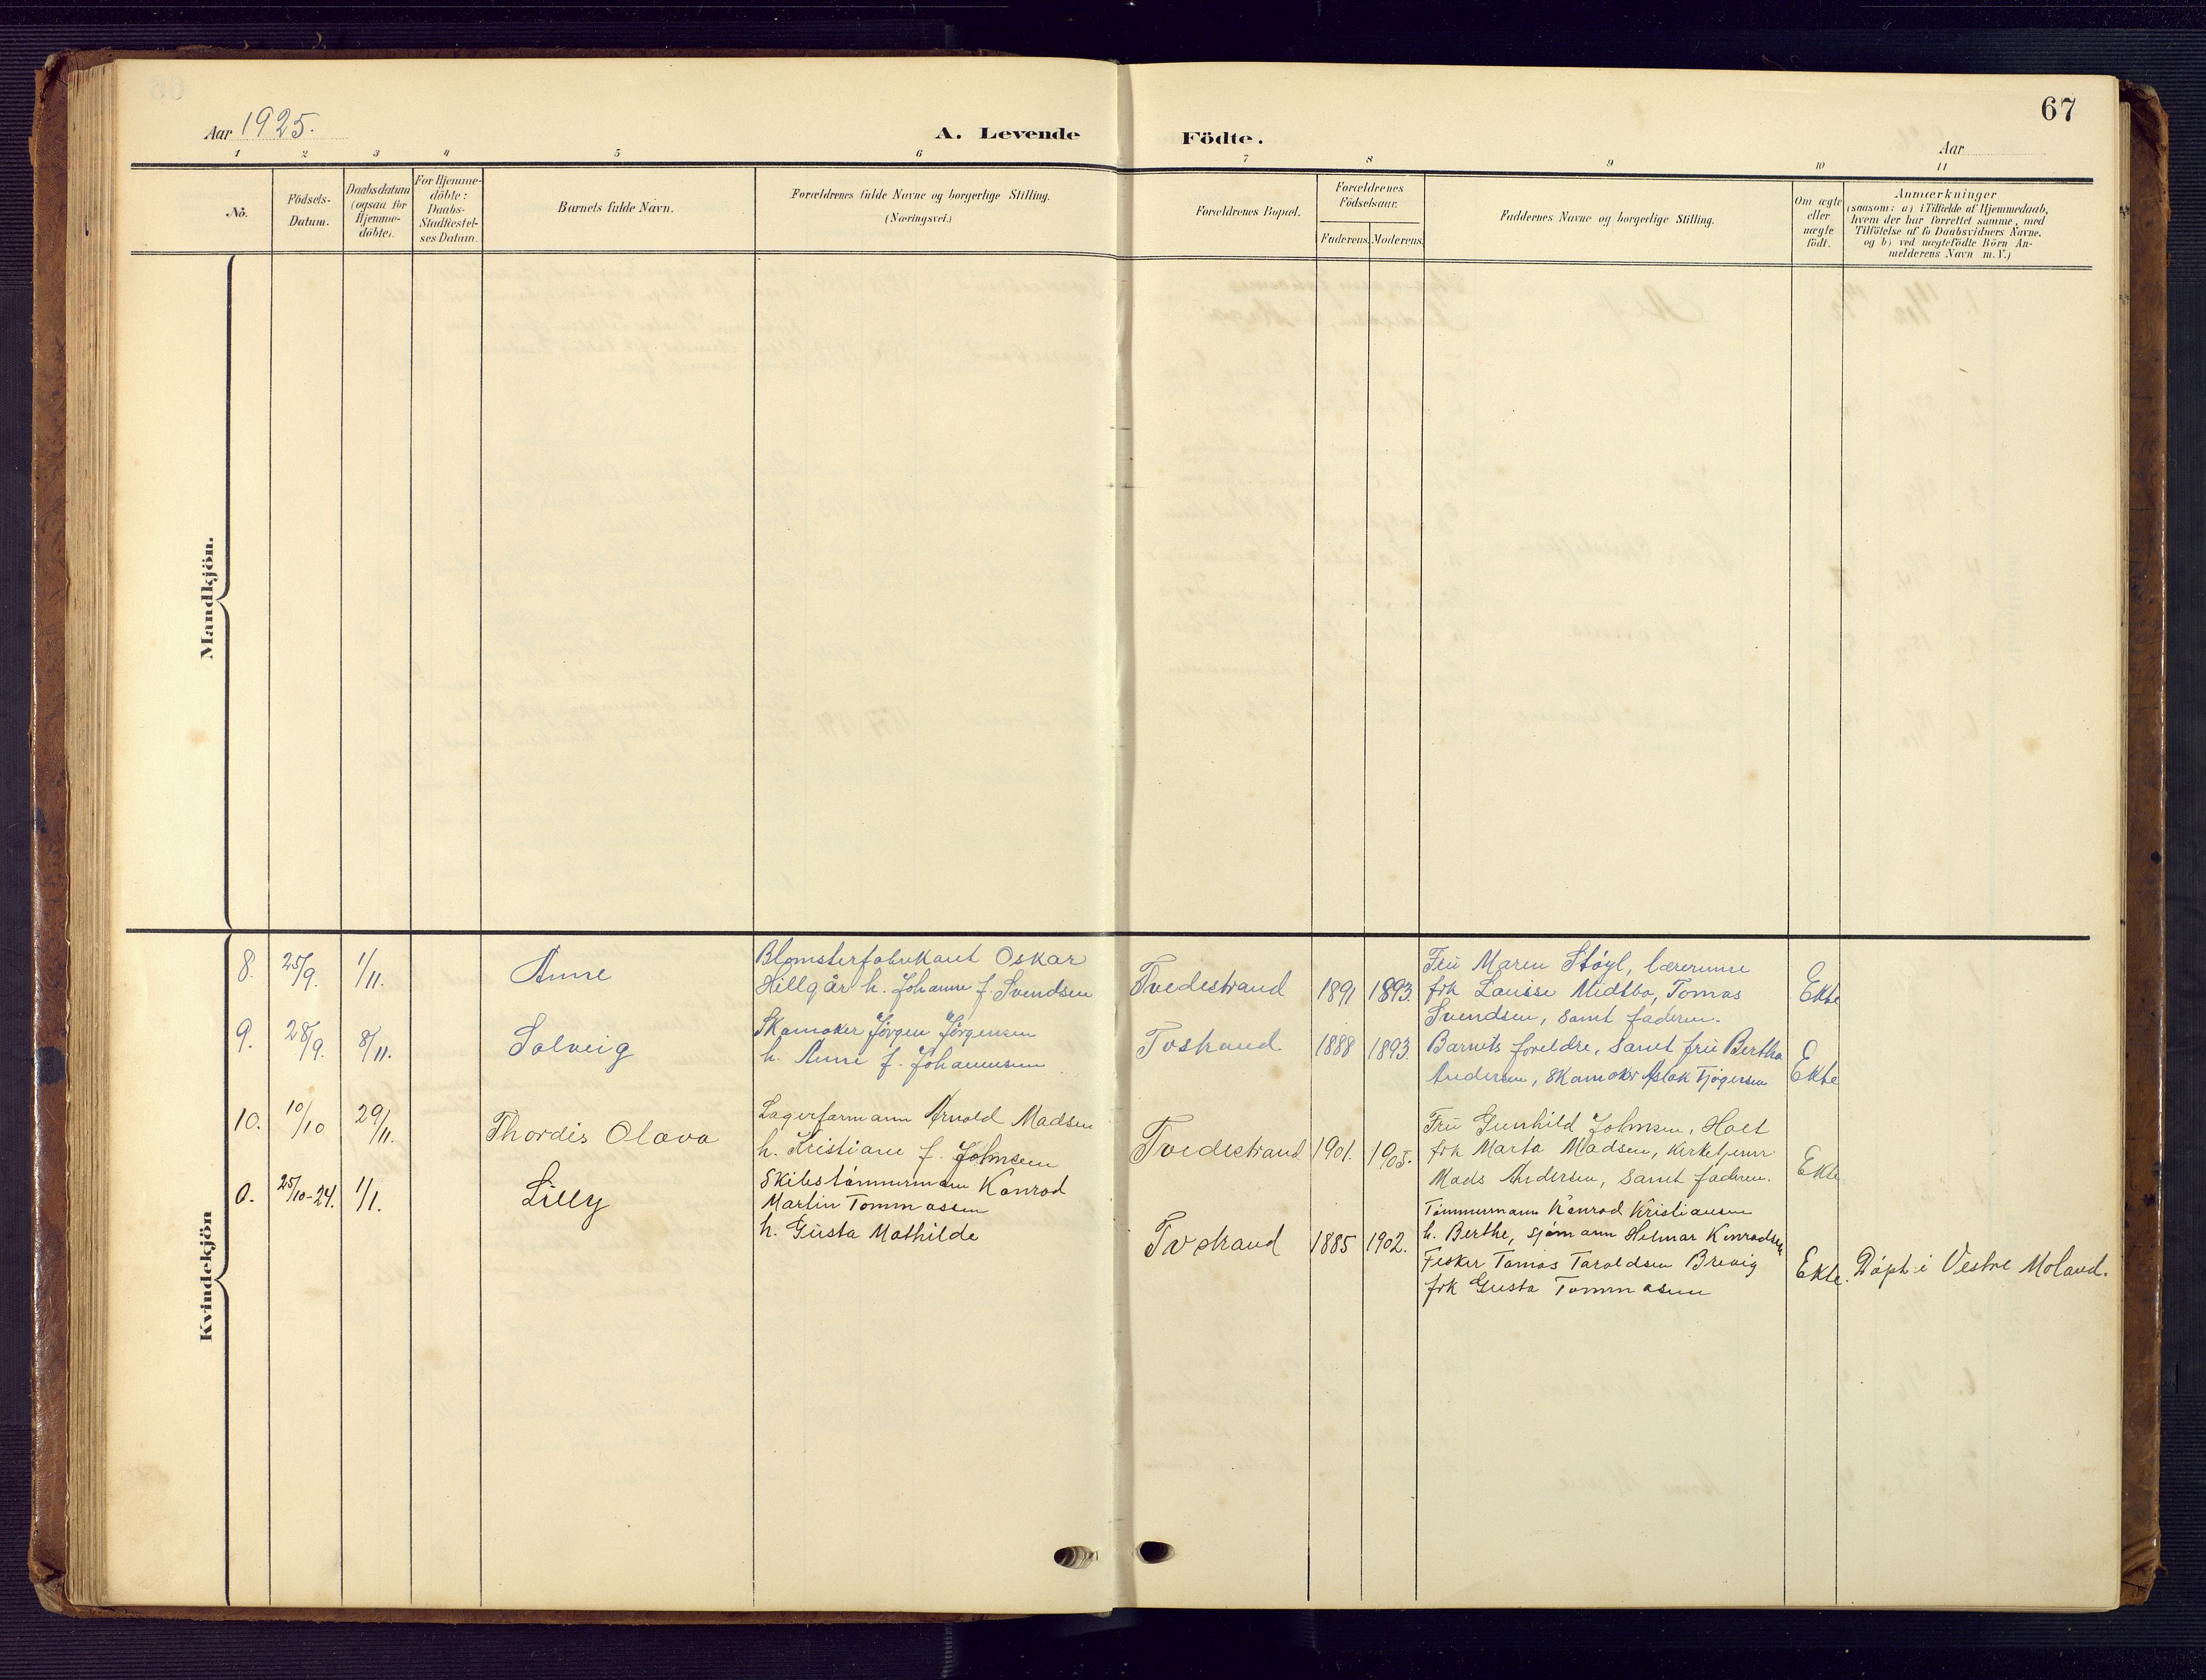 67
Aar 1925.
A. Levende Födte.
Aar
1 2 3 4 5 6 7 8 9 10 11
No.
Födsels-
Datum.
Daabsdatum
(ogsaa for
Hjemme-
döbte).
For Hjemme-
döbte:
Daabs-
Stadfestel-
ses Datum.
Barnets fulde Navn.
Forældrenes fulde Navne og borgerlige Stilling.
(Næringsvei.)
Forældrenes Bopæl.
Forældrenes
Födselsaar.
Faderens.
Moderens.
Faddernes Navne og borgerlige Stilling.
Om ægte
eller
uægte
född.
Anmærkninger
(saasom: a) i Tilfælde af Hjemmedaab,
hvem der har forrettet samme, med
Tilföielse af to Daabsvidners Navne,
og b) ved uægtefödte Börn An-
melderens Navn m. V.)
Mandkjön.
Kvindekjön
8. 25/9. 1/11. Anne
Blomsterfabrikant Oskar
Hillgår h. Johanne f. Svendsen
Tvedestrand 1891 1893.
Fru Maren Støyl, lærerinne
frk Louise Midtbø, Tomas
Svendsen, samt faderen.
Ekte
9. 28/9. 8/11. Solveig
Skomaker Jørgen Jørgensen
h. Anne f. Johannesen
Tvstrand 1888 1893.
Barnets foreldre, samt fru Bertha
Andersen, skomaker Aslak Tjøgersen
Ekte
10. 10/10 29/11. Thordis Olava
Lagerformann Arnold Madsen
h. Kristiane f. Johnsen
Tvedestrand 1901. 1905.
Fru Gunhild Johnsen, Holt
frk Marta Madsen, kirketjener
Mads Andersen, samt faderen.
Ekte
0. 25/10-24. 1/1. Lilly
Skibstømmermann Konrad
Martin Tommassen
h. Gusta Mathilde
Tvstrand 1885 1902.
Tømmermann Konrad Kristiansen
h. Berthe, sjømann Helmar Konradsen
Fisker Tomas Taraldsen Brevig
frk Gusta Tommasen
Ekte. Døpt i Vestre Moland.